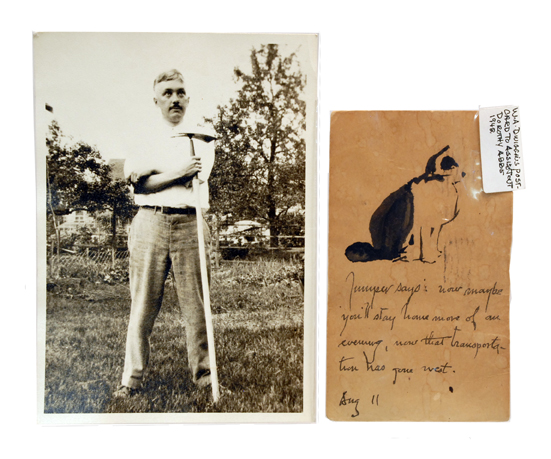 WA DWIGGINS POST-
CARD TO ASSISTANT
DOROTHY ABBE
1942
Jumper says: now maybe
you'll stay home more of an
evening, now that transporta-
tion has gone west.
Aug 11